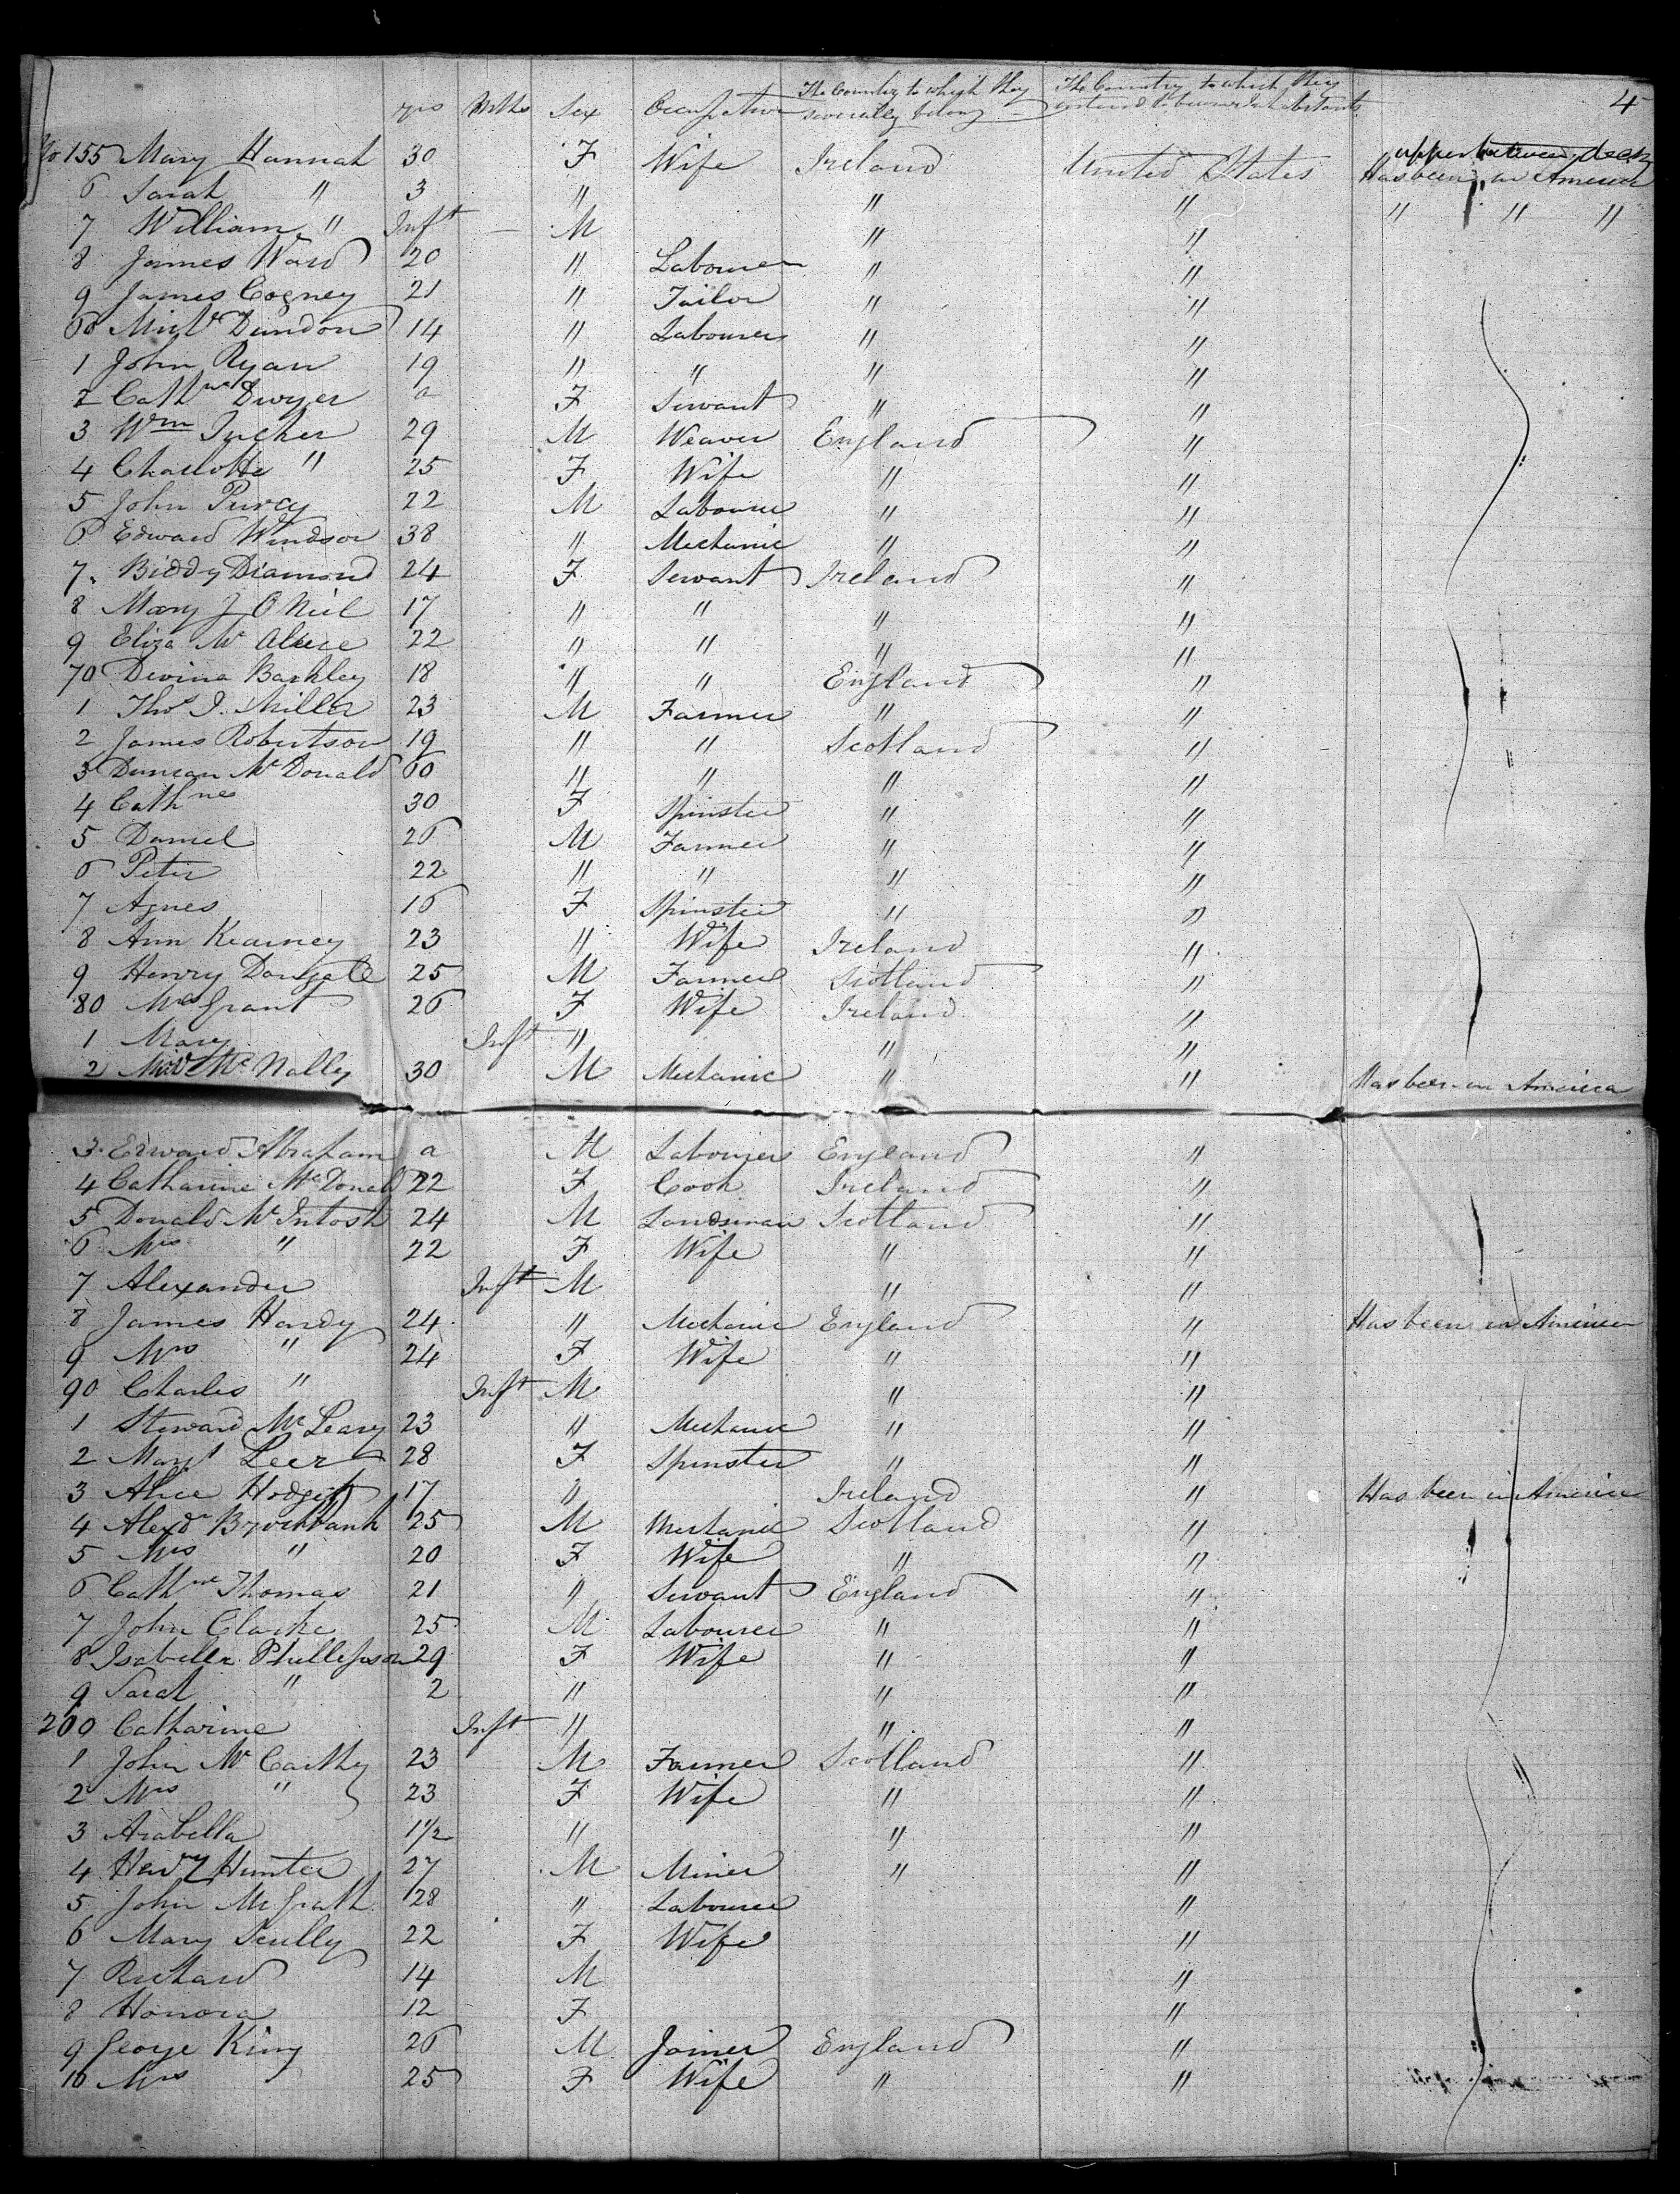 4
yrs Mths Sex Occupation The Country to which they severally belong The Country to which they intend to become inhabitants
upper between decks
No 155 Mary Hannah 30 F Wife Ireland United States Has been in America
6 Sarah " 3 " " " " " "
7 William " Inft M " "
8 James Ward 20 " Labourer " "
9 James Cogney 21 " Tailor " "
60 Michl Dundon 14 " Labourer " "
1 John Ryan 19 " " " "
2 Cathne Dwyer a F Servant " "
3 Wm Tucker 29 M Weaver England "
4 Charlotte " 25 F Wife " "
5 John Purcy 22 M Labourer " "
6 Edward Windsor 38 " Mechanic " "
7 Biddy Diamond 24 F Servant Ireland "
8 Mary J O Niel 17 " " " "
9 Eliza Mc 22 " " " "
70 Devina Barkley 18 " " England "
1 Thos J. Miller 23 M Farmer " "
2 James Robertson 19 " " Scotland "
3 Duncan Mc Donald 60 " " " "
4 Cathne 30 F Spinster " "
5 Daniel 26 M Farmer " "
6 Peter 22 " " " "
7 Agnes 16 F Spinster " "
8 Ann Kearney 23 " Wife Ireland "
9 Henry 25 M Farmer Scotland "
80 Mrs Grant 26 F Wife Ireland "
1 Mary Inft " " "
2 Michl Mc Nally 30 M Mechanic " " Has been in America
3 Edward Abraham a M Labourer England "
4 Catharine McDonald 22 F Cook Ireland "
5 Donald McIntosh 24 M Landsman Scotland "
6 Mrs " 22 F Wife " "
7 Alexander Inft M " "
8 James Hardy 24 " Mechanic England " Has been in America
9 Mrs " 24 F Wife " "
90 Charles " Inft M " "
1 Steward McLeary 23 " Mechanic " "
2 Margt Leer 28 F Spinster " "
3 Alice Hodgett 17 " Ireland " Has been in America
4 Alexdr Brockbank 25 M Mechanic Scotland "
5 Mrs " 20 F Wife " "
6 Cathne Thomas 21 " Servant England "
7 John Clarke 25 M Labourer " "
8 Isabella Phillipson 29 F Wife " "
9 Sarah " 2 " " "
200 Catharine Inft " " "
1 John McCarthy 23 M Farmer Scotland "
2 Mrs " 23 F Wife " "
3 Arabella 1 1/2 " " "
4 Henry Hunter 27 M Miner " "
5 John McGrath 28 " Labourer "
6 Mary Scully 22 F Wife "
7 Richard 14 M "
8 Honora 12 F "
9 George King 26 M Joiner England "
10 Mrs 25 F Wife " "